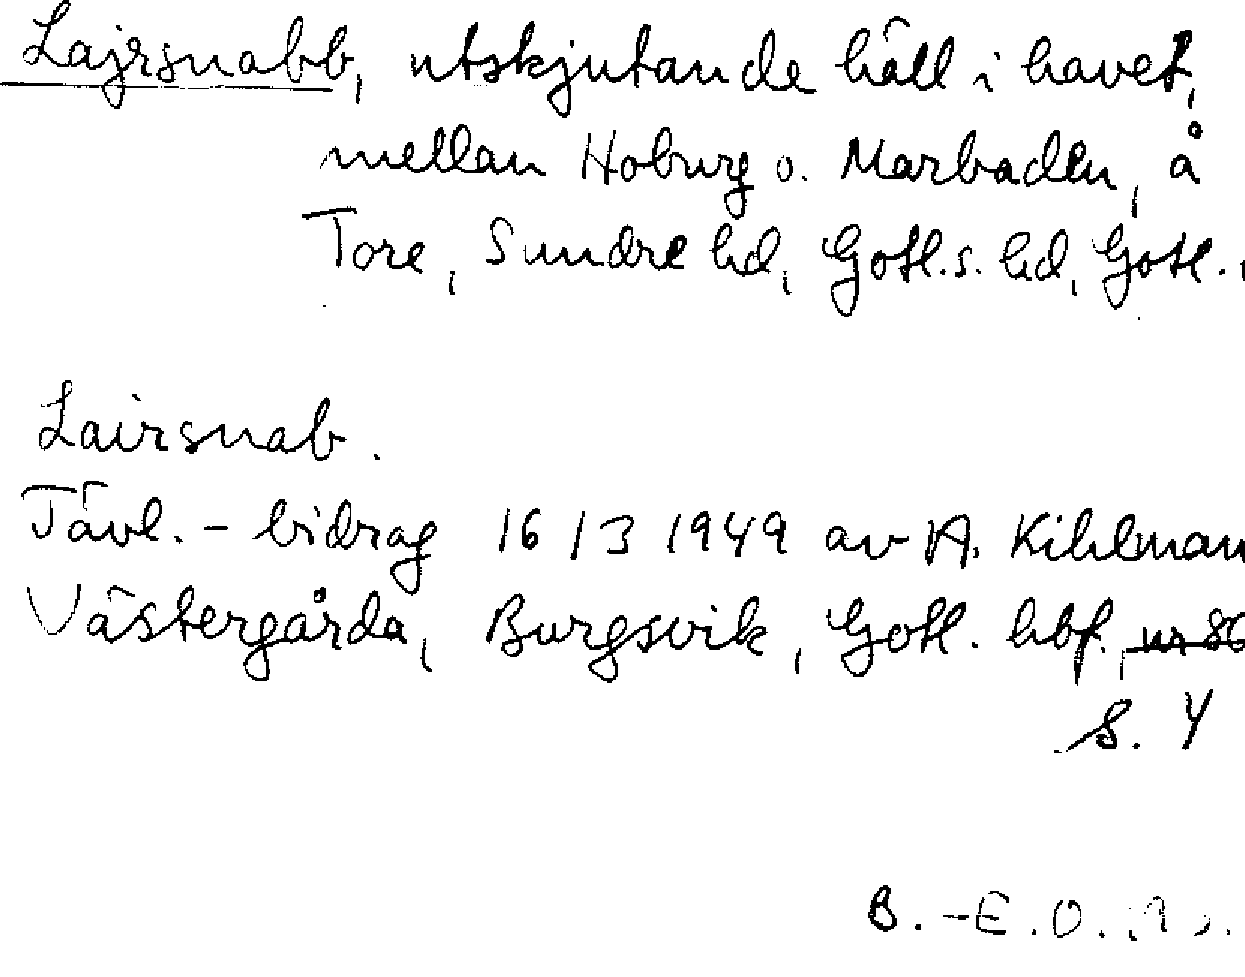 Lajrsnabb, utskjutande häll i havet,
mellan Hoburg o. Marbaden, å
Tore, Sundre hd, Gotl. s. hd, Gotl.,
Lairsnab.
Tävl. - bidrag 16/3 1949 av A. Kihlman
Västergårda, Burgsvik, Gotl. hbf., nr 86
s. 4
B. -E. O.